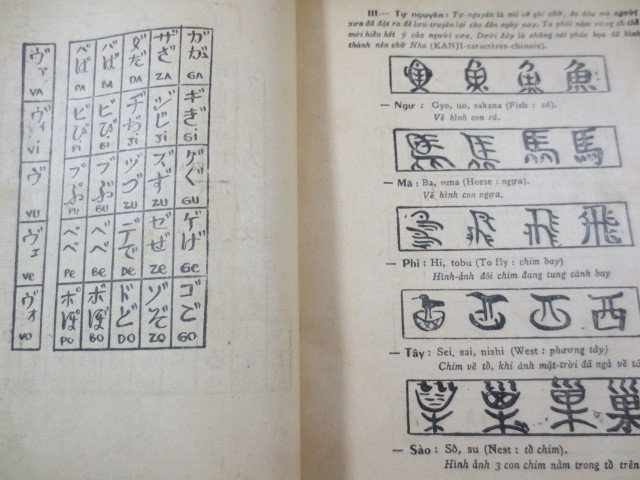 ヴァ パぱ バば ダだ ザざ ガが
VA PA BA DA ZA GA
ヴィ ピぴ ビび ヂぢ ジじ ギぎ
Vi Pi Bi Ji Ji Gi
ヴ プぷ ブぶ ヅづ ズず グぐ
VU PU BU ZU ZU GU
ヴェ ペぺ ベべ デで ゼぜ ゲげ
Ve Pe Be De Ze Ge
ヴォ ポぽ ボぼ ドど ゾぞ ゴご
VO PO BO DO ZO GO
III.— Tự nguyên : Tự-nguyên là nói về gốc chữ, do đâu mà người
xưa đã đặt ra để lưu-truyền lại cho đến ngày nay, Ta phải nắm vững cổ-thể
mới hiểu hết ý của người xưa, Dưới đây là những nét phác họa đã hình
thành nên chữ Nho (KANJI-caractères-chinois).
魚
— Ngư : Gyo, uo, sakana (Fish : cá).
Vẽ hình con cá.
馬 馬
— Mã : Ba, uma (Horse : ngựa).
Vẽ hình con ngựa,
飛 飛
— Phi : Hi, tobu (To fly : chim bay)
Hình-ảnh đôi chim đang tung cánh bay
西
— Tây : Sei, sai, nishi (West : phương tây)
Chim về tổ, khi ánh mặt-trời đã ngả về tâ
巢
— Sào : Sô, su (Nest : tổ chim).
Hình ảnh 3 con chim nằm trong tổ trên